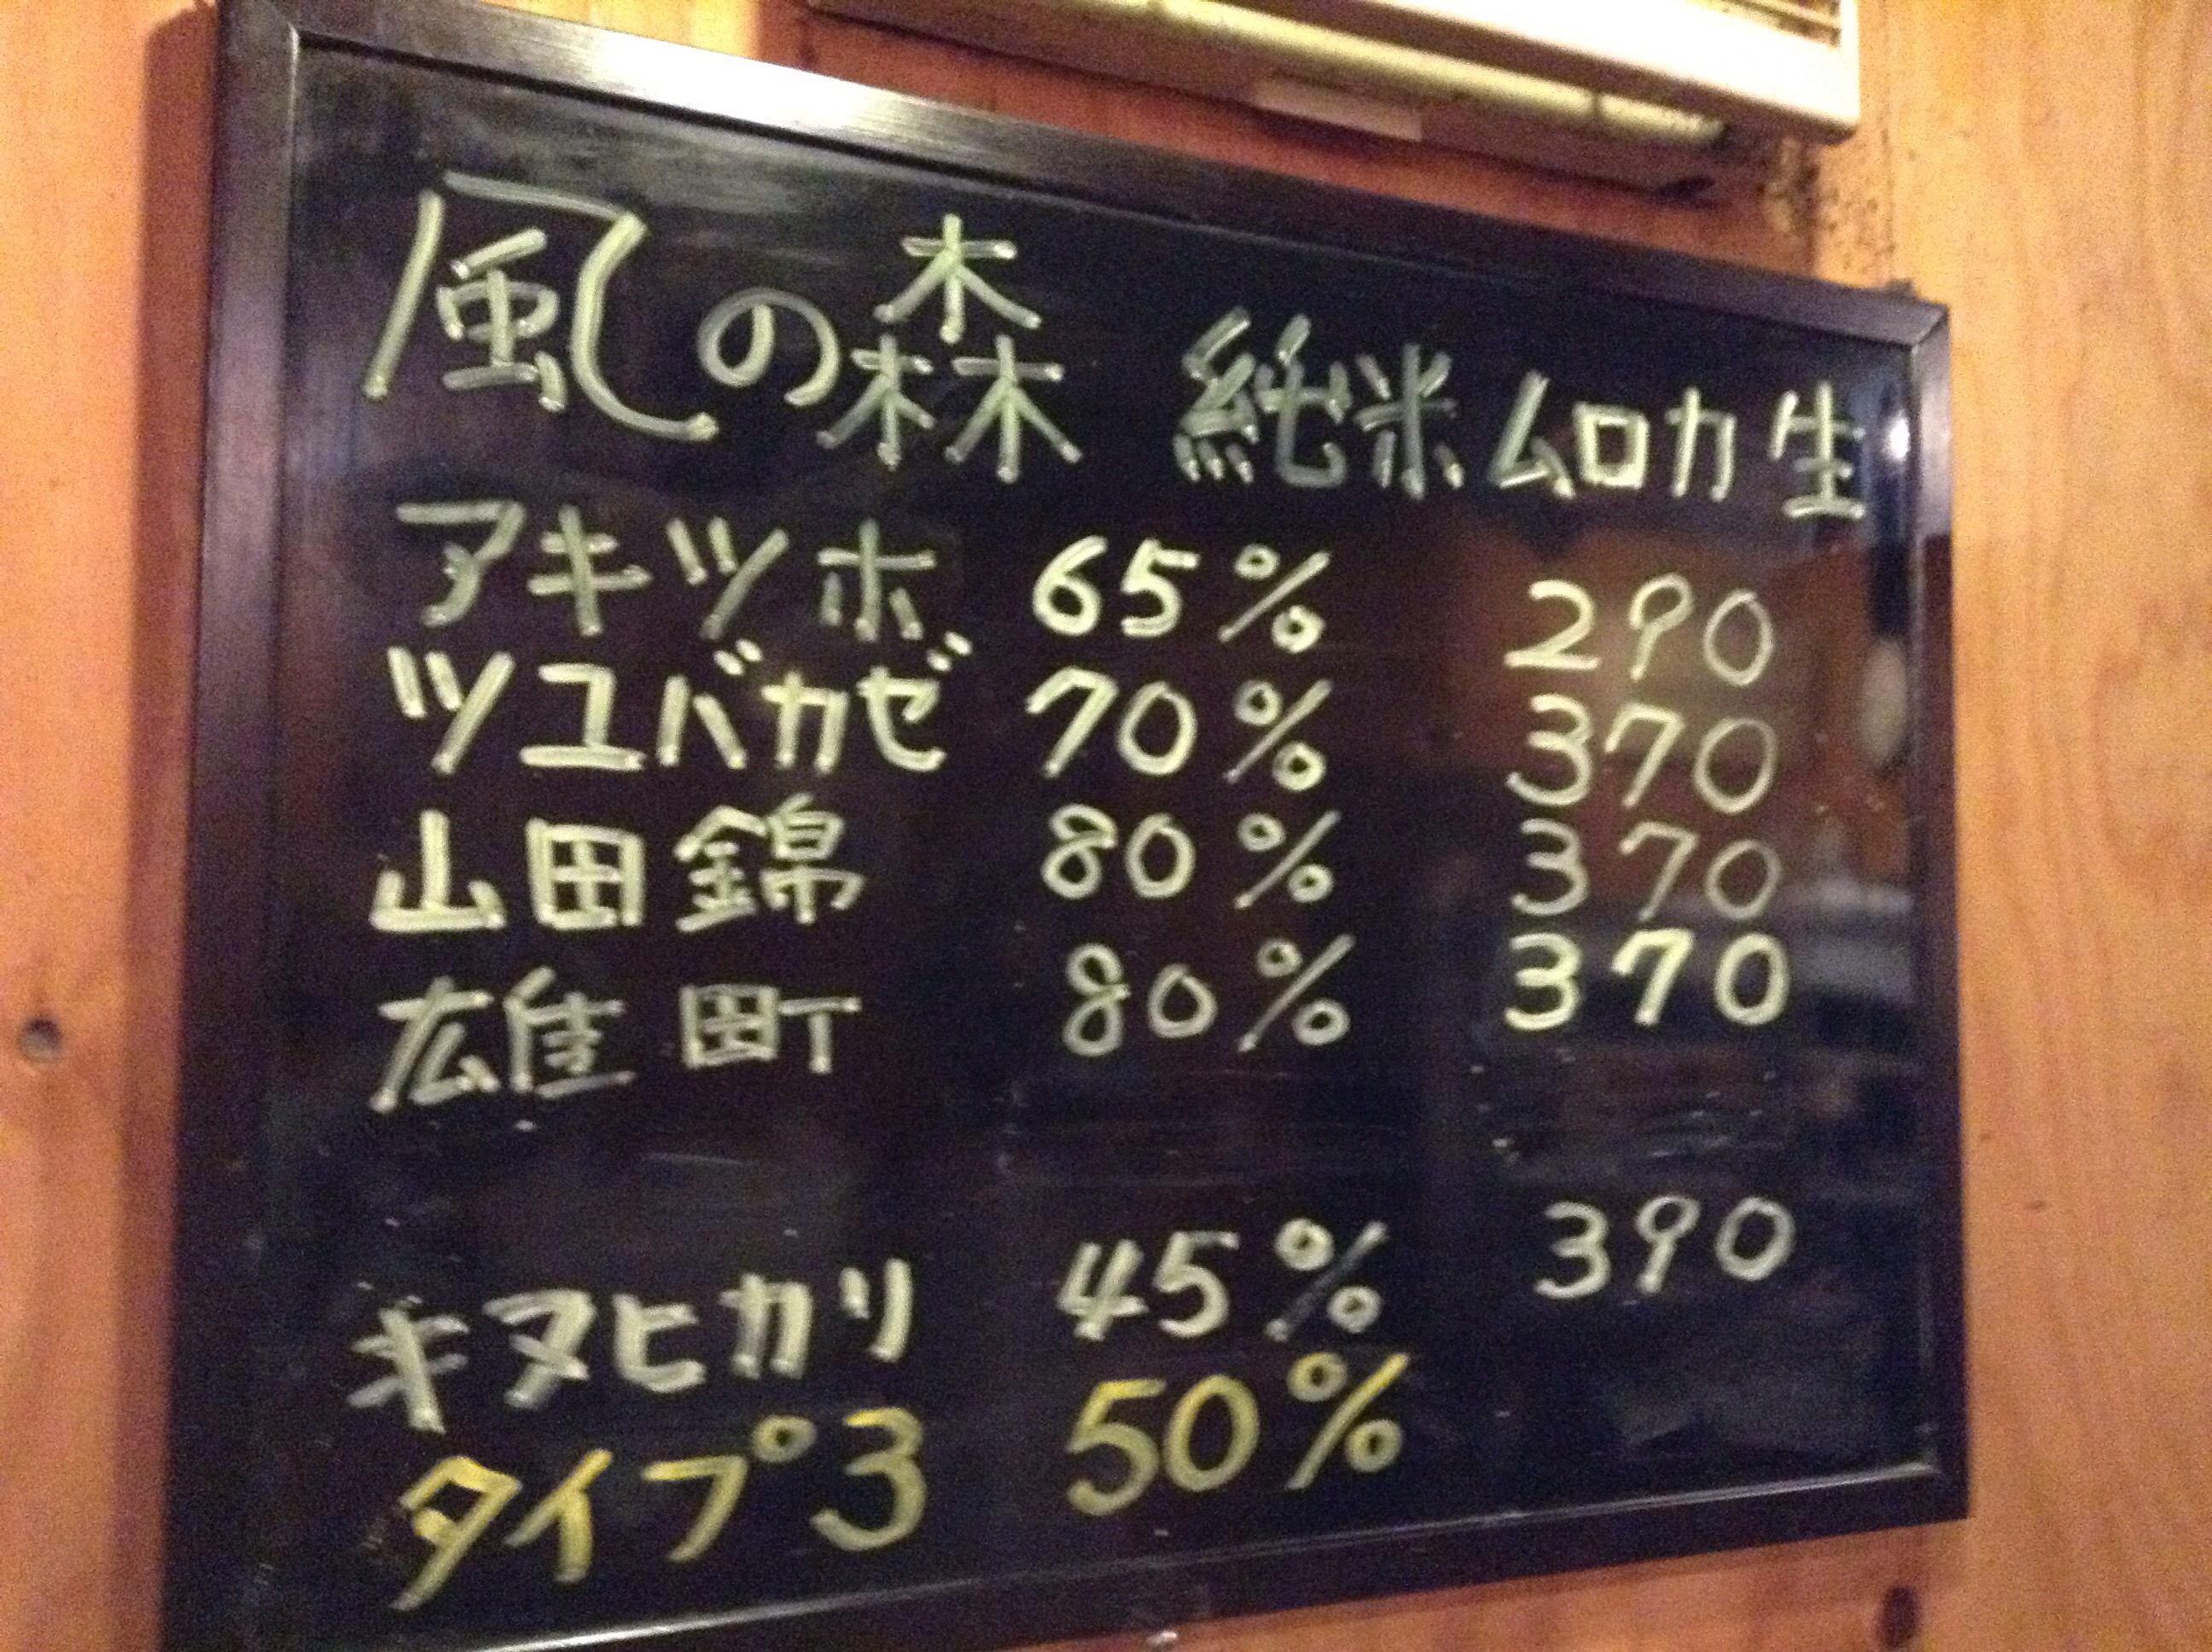 風の森 純米ムロカ生
アキツホ 65% 290
ツユバカゼ 70% 370
山田錦 80% 370
雄町 80% 370
キヌヒカリ 45% 390
タイプ3 50%